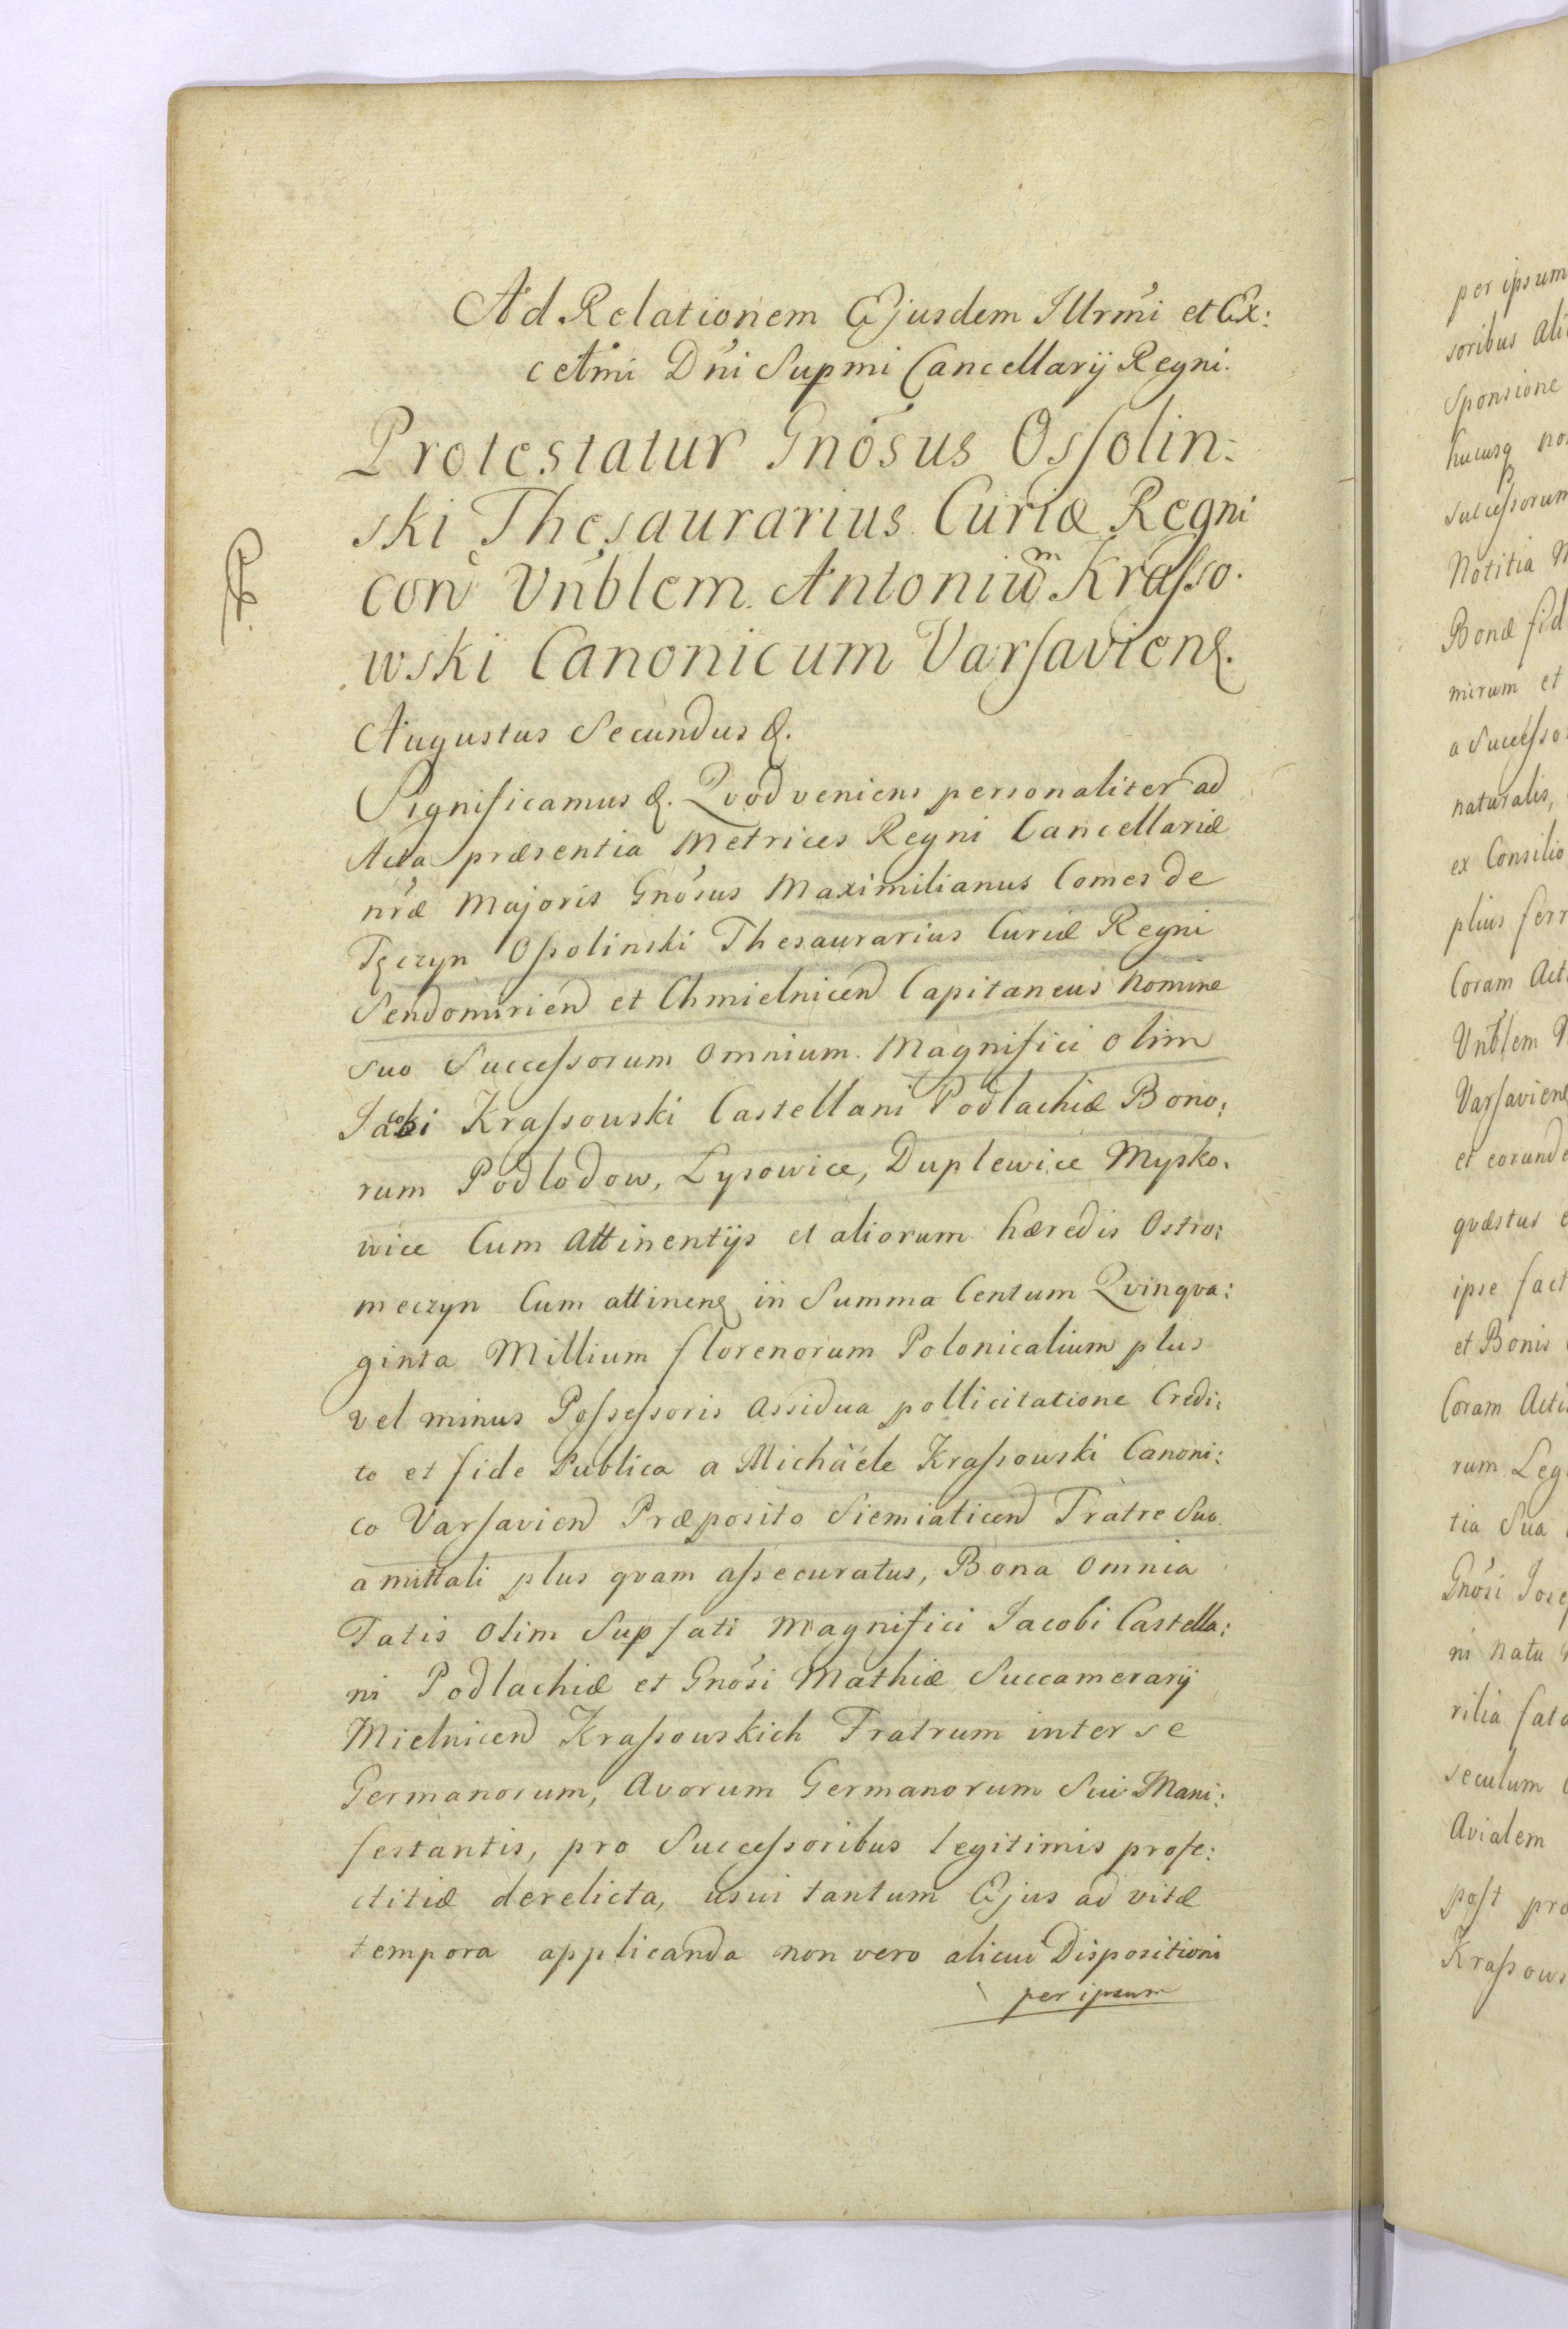 Ad Relationem Ejusdem Illrmi et Ex:
cellmi Dni Supmi Cancellarij Regni.
Protestatur Gnosus Ossolin:
ski Thesaurarius Curiæ Regni
con Vnblem Antonium Krasso.
wski Canonicum Varsavien.
Augustus Secundus &.
Significamus &. Qvod veniens personaliter ad
Acta præsentia Metrices Regni Cancellariæ
nræ Majoris Gnosus Maximilianus Comes de
Tęczyn Ossolinski Thesaurarius Curiæ Regni
Sendomirien et Chmielnicen Capitaneus Nomine
suo Successorum Omnium Magnifici olim
Jacobi Krassowski Castellani Podlachiæ Bono:
rum Podlodow, Lysowice, Duplewice Mysko.
wice Cum Attinentijs et aliorum hæredis Ostro:
meczyn Cum attinen in Summa Centum Qvinqva:
ginta Millium florenorum Polonicalium plus
vel minus Possessoris Assidua pollicitatione Credi:
to et fide Publica a Michäele Krassowski Canoni:
co Varsavien Præposito Siemiaticen Fratre Suo
amittali plus qvam assecuratus, Bona Omnia
Fatis Olim Supfati Magnifici Jacobi Castella:
ni Podlachiæ et Gnosi Mathiæ Succamerarij
Mielnicen Krassowskich Fratrum inter se
Germanorum, Avorum Germanorum Sui Mani:
festantis, pro Successoribus legitimis profe:
ctitiæ derelicta, usui tantum Ejus ad vitæ
tempora applicanda non vero alicui Dispositioni
per ipsum
per ipsum
soribus
Sponsione
hucusq
successorum
Notitia
Bonæ
mirum et
a Successo
naturalis,
ex Consilio
plius
Coram
Vnblem
Varsavien
et
qvæstus
ipse
et Bonis
Coram
rum
tia Sua
Gnosi
ni natu
rilia
seculum
Avialem
post